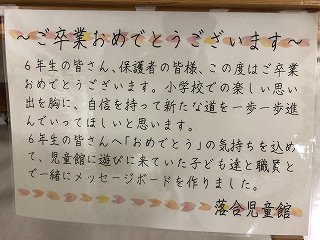 ～ご卒業おめでとうございます～
６年生の皆さん、保護者の皆様、この度はご卒業
おめでとうございます。小学校での楽しい思い
出を胸に、自信を持って新たな道を一歩一歩進
んでいってほしいと思います。
６年生の皆さんへ「おめでとう」の気持ちを込め
て、児童館に遊びに来ていた子ども達と職員と
で一緒にメッセージボードを作りました。
落合児童館